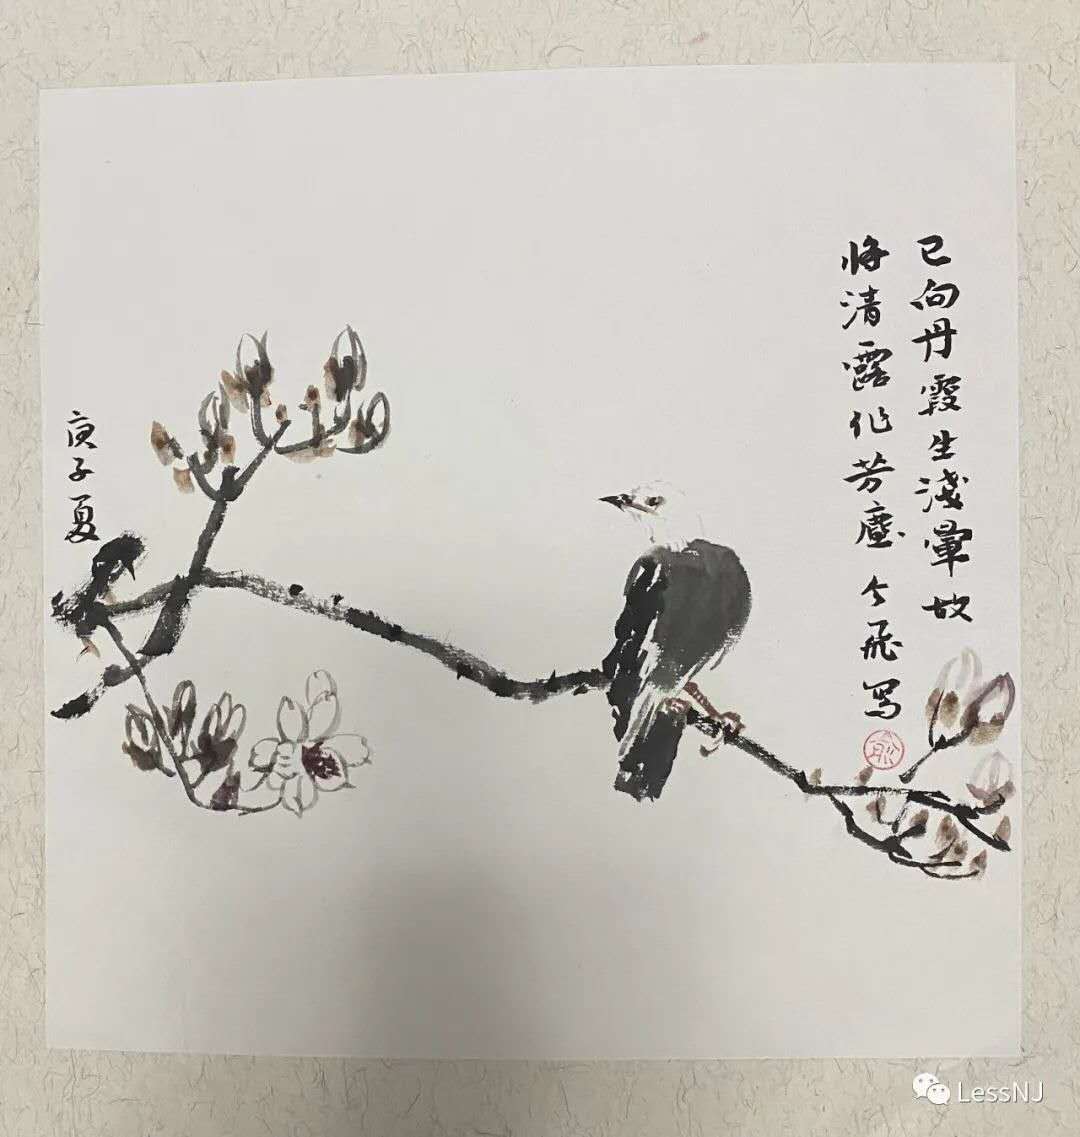 已向丹霞生淺暈故
將清露作芳塵 今飛写
俞
庚子夏
LessNJ